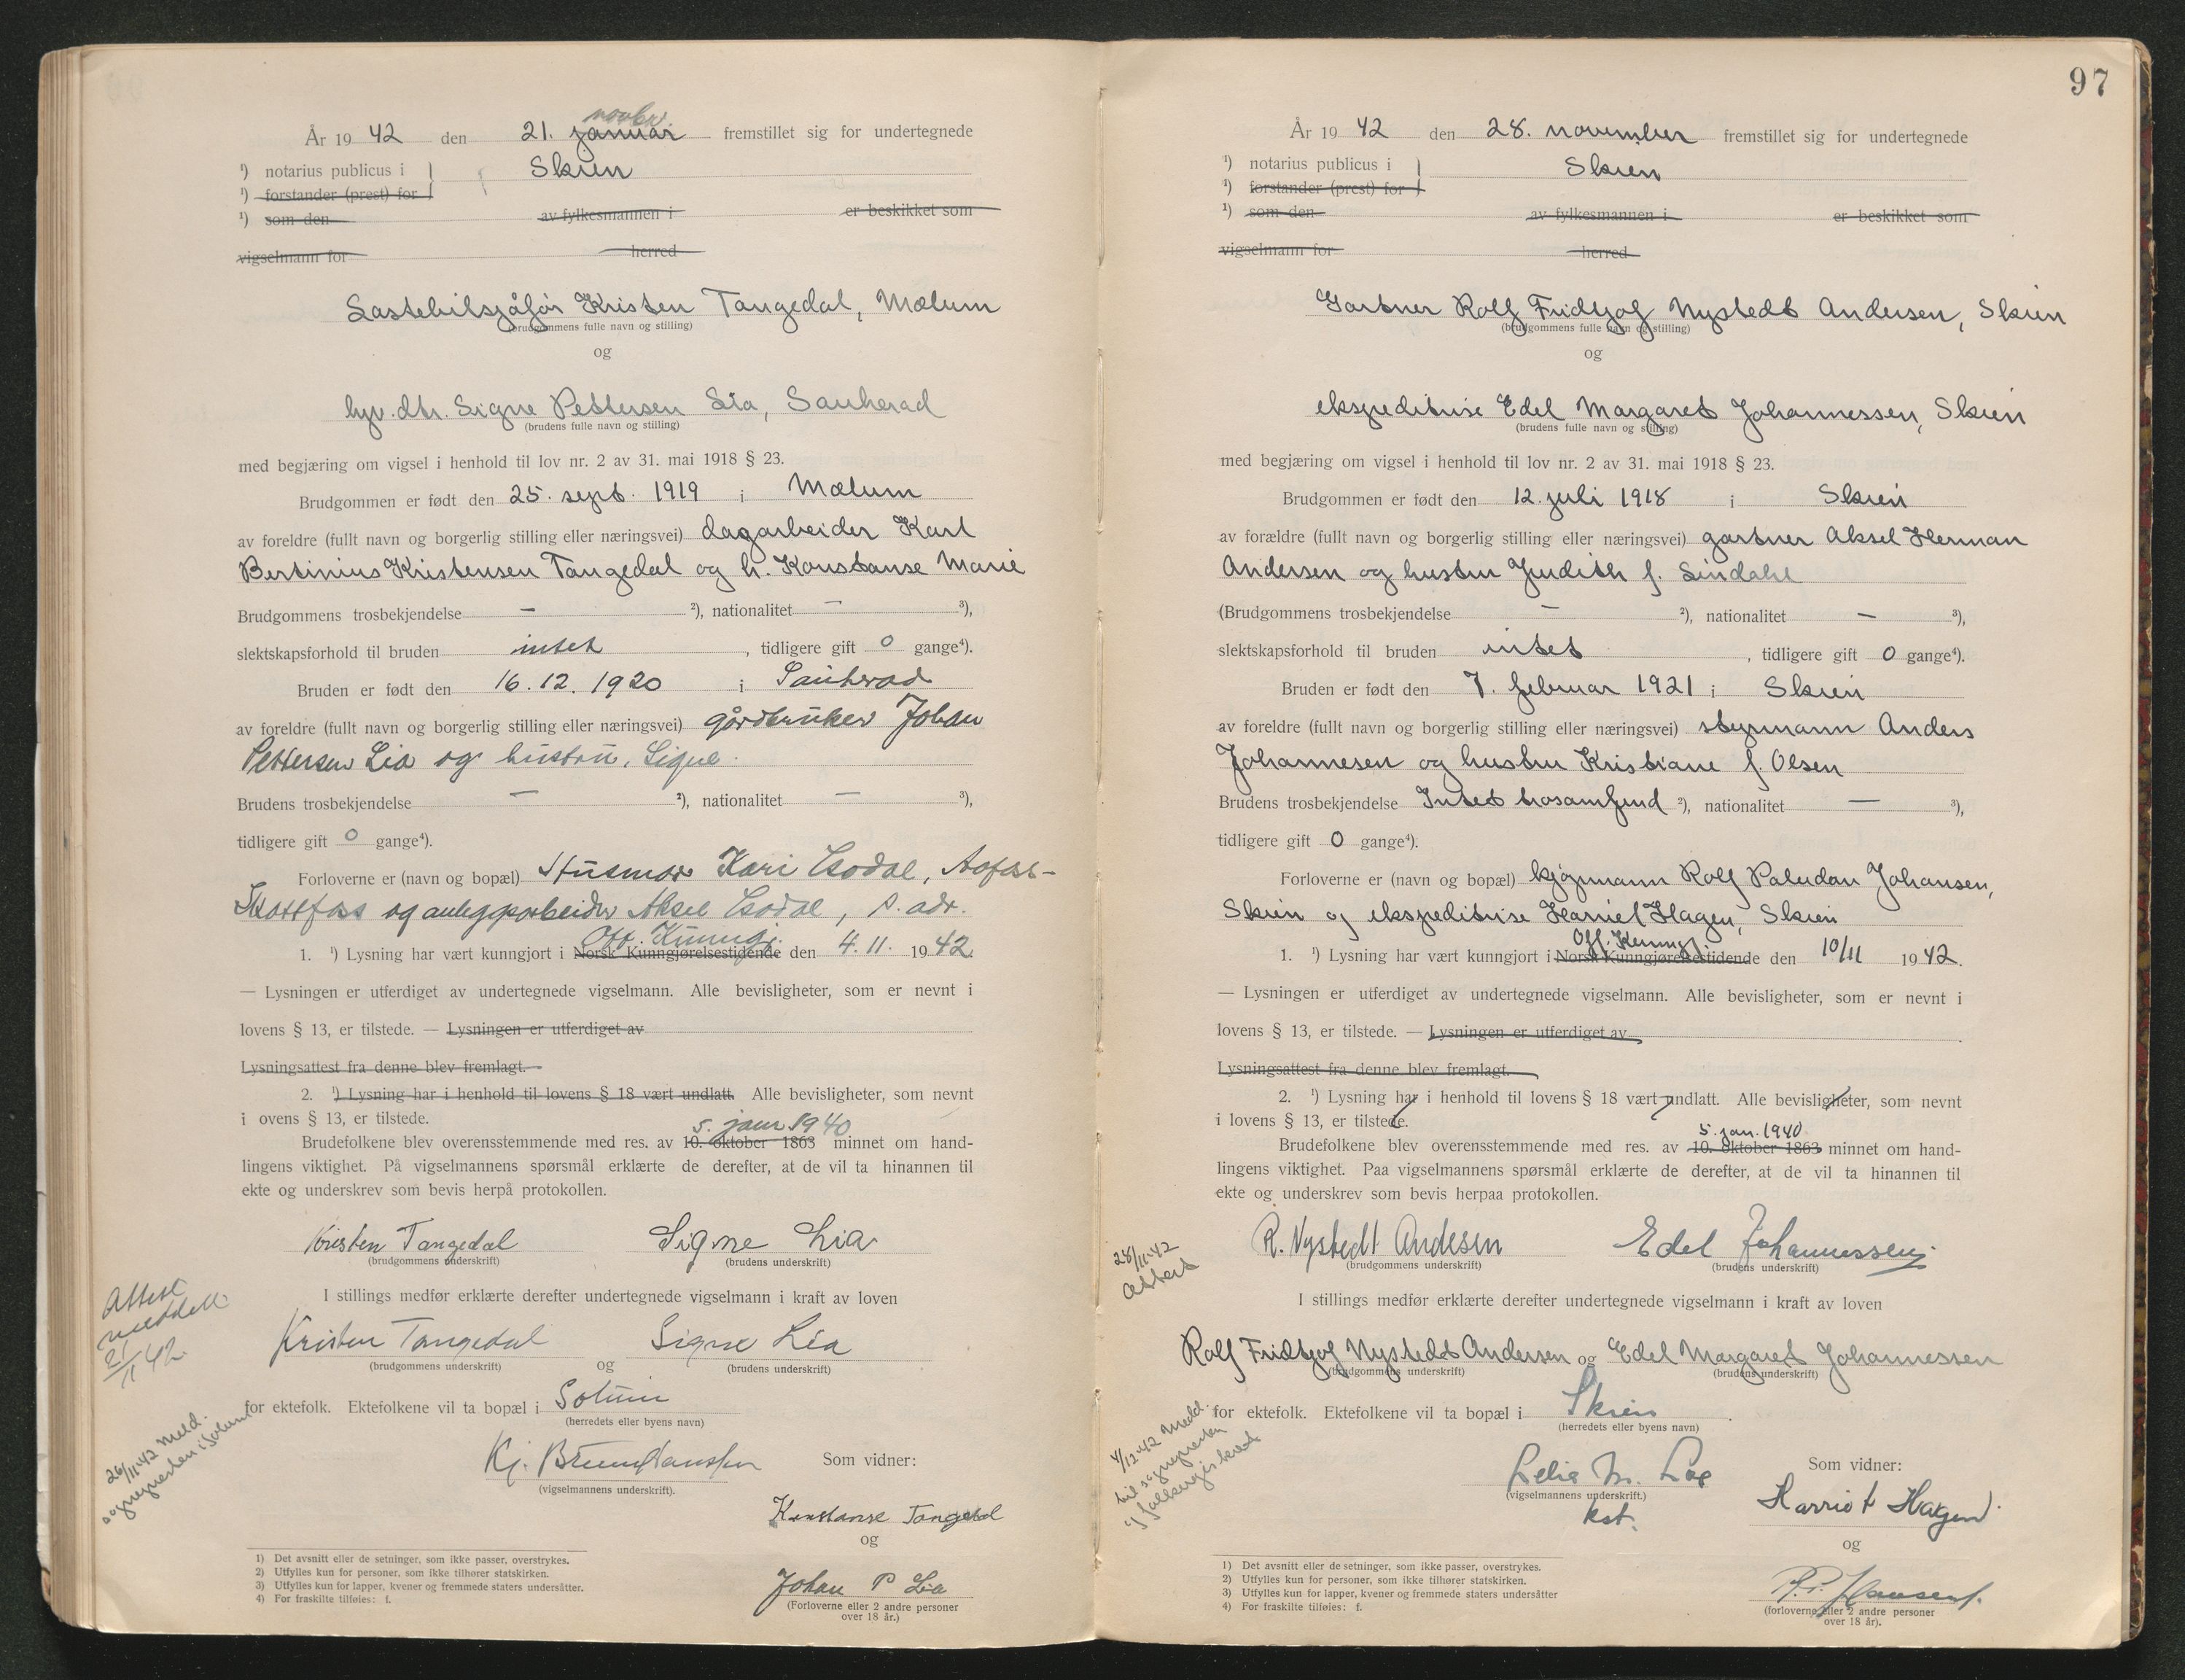 År 19 42 den 21. januar novbr. fremstillet sig for undertegnede
¹) notarius publicus i Skien
¹) forstander (prest) for
¹) som den av fylkesmannen i er beskikket som
vigselmann for herred
Lastebilsjåfør Kristen Tangedal, Mælum
(brudgommens fulle navn og stilling)
og
hjv. dtr. Signe Pettersen Lia, Sauherad
(brudens fulle navn og stilling)
med begjæring om vigsel i henhold til lov nr. 2 av 31. mai 1918 § 23.
Brudgommen er født den 25. sept. 1919 i Mælum
av foreldre (fullt navn og borgerlig stilling eller næringsvei) dagarbeider Karl
Bertinius Kristensen Tangedal og h. Konstanse Marie
Brudgommens trosbekjendelse — ²), nationalitet — ³),
slektskapsforhold til bruden intet, tidligere gift 0 gange⁴).
Bruden er født den 16.12.1920 i Sauherad
av foreldre (fullt navn og borgerlig stilling eller næringsvei) gårdbruker Johan
Pettersen Lia og hustru, Signe.
Brudens trosbekjendelse — ²), nationalitet — ³),
tidligere gift 0 gange⁴).
Forloverne er (navn og bopæl) Husmor Kari
Skotfoss og anleggsarbeider Aksel, s. adr.
1. ¹) Lysning har vært kunngjort i Norsk Kunngjørelsestidende Off. Kunngj. den 4.11. 19 42.
— Lysningen er utferdiget av undertegnede vigselmann. Alle bevisligheter, som er nevnt i
lovens § 13, er tilstede. — Lysningen er utferdiget av
Lysningsattest fra denne blev fremlagt.—
2. ¹) Lysning har i henhold til lovens § 18 vært undlatt. Alle bevisligheter, som nevnt
i ovens § 13, er tilstede.
5. janr 1940
Brudefolkene blev overensstemmende med res. av 10. oktober 1863 minnet om hand-
lingens viktighet. På vigselmannens spørsmål erklærte de derefter, at de vil ta hinannen til
ekte og underskrev som bevis herpå protokollen.
Kristen Tangedal Signe Lia
(brudgommens underskrift) (brudens underskrift)
Attest
meddelt
21/11 42
I stillings medfør erklærte derefter undertegnede vigselmann i kraft av loven
Kristen Tangedal og Signe Lia
(brudgommens underskrift) (brudens underskrift)
for ektefolk. Ektefolkene vil ta bopæl i Solum
(herredets eller byens navn)
26/11-42 Meld.
sognepresten i Solum
Kj. Bruun Hanssen Som vidner:
(vigselmannens underskrift).
Konstanse Tangedal
og
Johan P Lia
(Forloverne eller 2 andre personer
over 18 år.)
1) Det avsnitt eller de setninger, som ikke passer, overstrykes.
2) Utfylles kun for personer, som ikke tilhører statskirken.
3) Utfylles kun for lapper, kvener og fremmede staters undersåtter.
4) For fraskilte tilføies: f.
97
År 19 42 den 28. november fremstillet sig for undertegnede
¹) notarius publicus i Skien
¹) forstander (prest) for
¹) som den av fylkesmannen i er beskikket som
vigselmann for herred
Gartner Rolf Fridtjof Nystedt Andersen, Skien
(brudgommens fulle navn og stilling)
og
ekspeditrise Edel Margaret Johannessen, Skien
(brudens fulle navn og stilling)
med begjæring om vigsel i henhold til lov nr. 2 av 31. mai 1918 § 23.
Brudgommen er født den 12. juli 1918 i Skien
av forældre (fullt navn og borgerlig stilling eller næringsvei) gartner Aksel Herman
Andersen og hustru Judith f. Lindahl
(Brudgommens trosbekjendelse — ²), nationalitet — ³),
slektskapsforhold til bruden intet, tidligere gift 0 gange⁴).
Bruden er født den 7. februar 1921 i Skien
av foreldre (fullt navn og borgerlig stilling eller næringsvei) styrmann Anders
Johannesen og hustru Kristiane f. Olsen
Brudens trosbekjendelse Intet trosamfund ²), nationalitet — ³),
tidligere gift 0 gange⁴).
Forloverne er (navn og bopæl) kjøpmann Rolf Paludan Johansen,
Skien og ekspeditrise Harriet Hagen, Skien
1. ¹) Lysning har vært kunngjort i Norsk Kunngjørelsestidende Off. Kunngj. den 10/11 19 42.
— Lysningen er utferdiget av undertegnede vigselmann. Alle bevisligheter, som er nevnt i
lovens § 13, er tilstede. — Lysningen er utferdiget av
Lysningsattest fra denne blev fremlagt.
2. ¹) Lysning har i henhold til lovens § 18 vært undlatt. Alle bevisligheter, som nevnt
i lovens § 13, er tilstede.
5. jan. 1940
Brudefolkene blev overensstemmende med res. av 10. oktober 1863 minnet om hand-
lingens viktighet. Paa vigselmannens spørsmål erklærte de derefter, at de vil ta hinannen til
ekte og underskrev som bevis herpaa protokollen.
R. Nystedt Andesen Edel Johannessen
(brudgommens underskrift) (brudens underskrift)
28/11-42
Attest
I stillings medfør erklærte derefter undertegnede vigselmann i kraft av loven
Rolf Fridtjof Nystedt Andersen og Edel Margaret Johannessen
(brudgommens underskrift) (brudens underskrift)
for ektefolk. Ektefolkene vil ta bopæl i Skien.
(herredets eller byens navn)
4/12-42 Medd.
til sognepresten
Som vidner:
(vigselmannens underskrift.)
kst.
Harriet Hagen.
og
Hansen.
(forloverne eller 2 andre personer
over 18 år).
1) Det avsnitt eller de setninger, som ikke passer, overstrykes.
2) Utfylles kun for personer, som ikke tilhører statskirken.
3) Utfylles kun for lapper, kvener og fremmede staters undersåtter
4) For fraskilte tilføies: f.